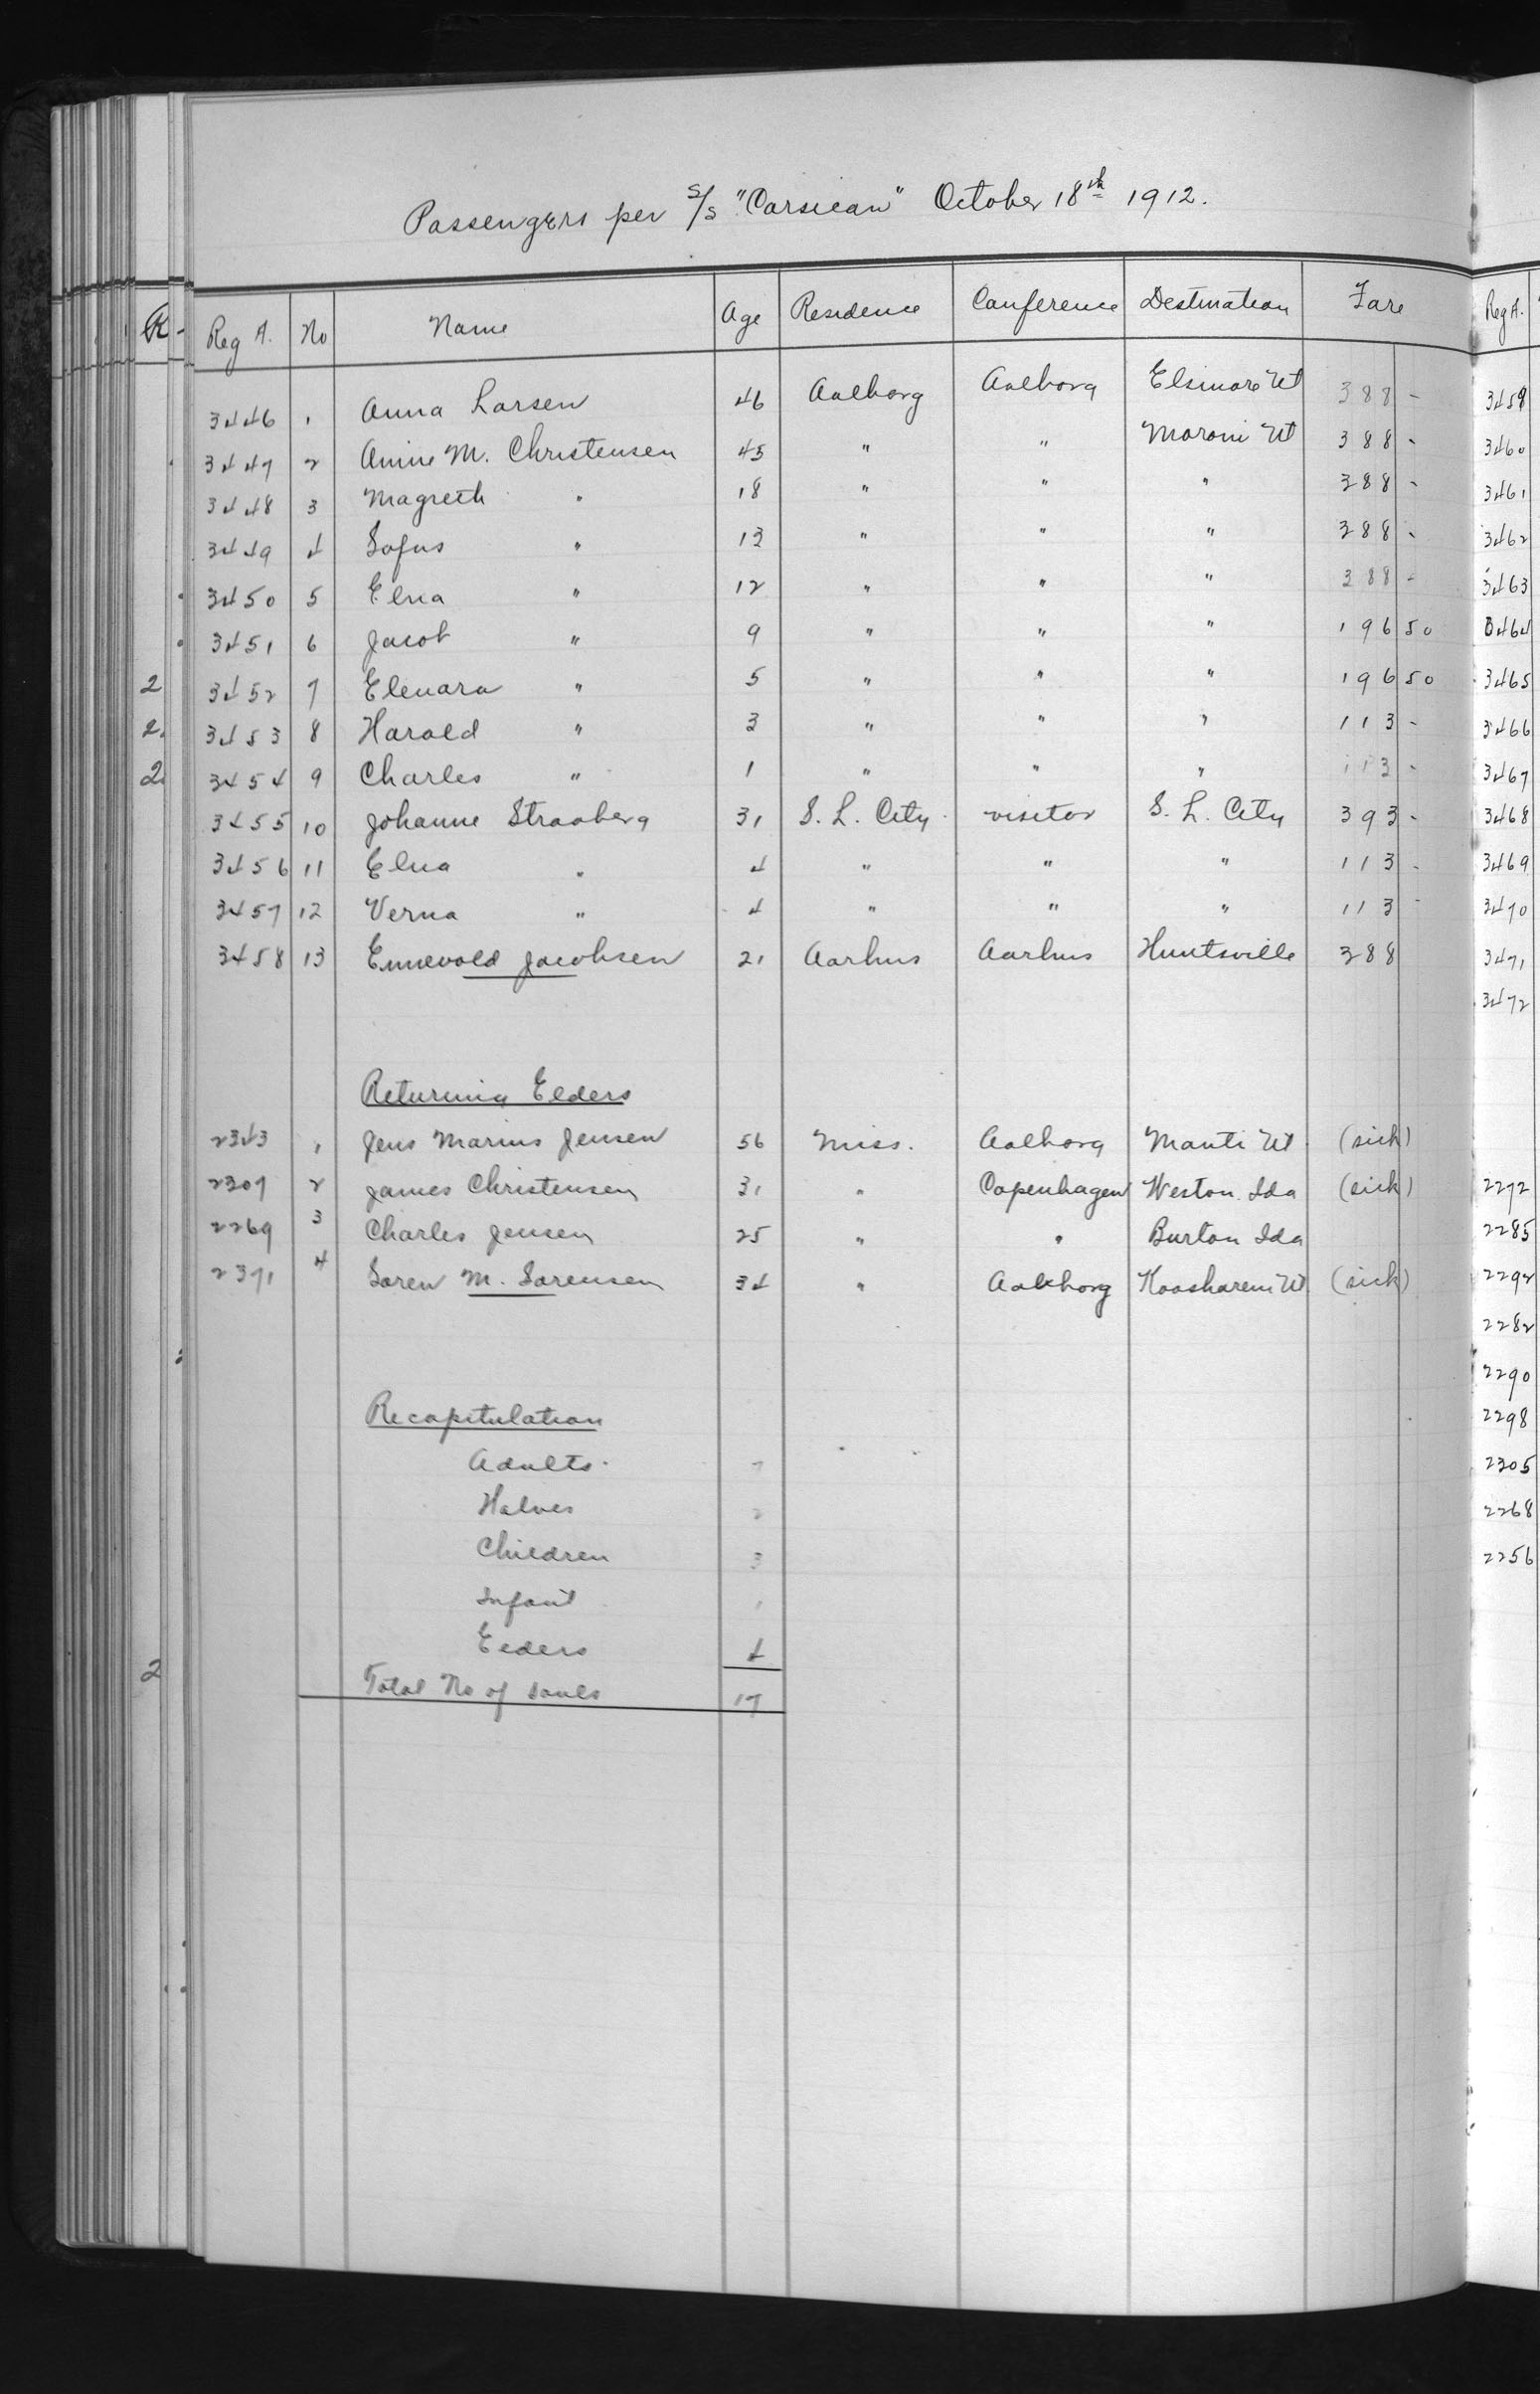 Passengers per S/S "Corsican" October 18th 1912.
R
Reg A. No Name Age Residence Conference Destination Fare
3446 1 Anna Larsen 46 Aalborg Aalborg Elsinore Ut 388 -
3447 2 Anine M. Christensen 45 " " Moroni Ut 388 -
3448 3 Magreth " 18 " " " 388 -
3449 4 Sofus " 13 " " " 388 -
3450 5 Elna " 12 " " " 388 -
3451 6 Jacob " 9 " " " 196 50
2 3452 7 Elenara " 5 " " " 196 50
2. 3453 8 Harald " 3 " " " 113 -
2. 3454 9 Charles " 1 " " " 113 -
3455 10 Johanne Straaberg 31 S. L. City visitor S. L. City 393 -
3456 11 Elna " 4 " " " 113 -
3457 12 Verna " 4 " " " 113 -
3458 13 Ennevold Jacobsen 21 Aarhus Aarhus Huntsville 388
Returning Elders
2343 1 Jens Marius Jensen 56 Miss. Aalborg Manti Ut (sick)
2307 2 James Christensen 31 " Copenhagen Weston Ida (sick)
2269 3 Charles Jensen 25 " " Burton Ida
2371 4 Soren M. Sorensen 34 " Aalborg Koosharem Ut (sick)
Recapitulation
Adults 7
Halves 2
Children 3
Infant 1
Elders 4
2
Total No of souls 17
Reg A.
3459
3460
3461
3462
3463
3464
3465
3466
3467
3468
3469
3470
3471
3472
2272
2285
2292
2282
2290
2298
2305
2268
2256